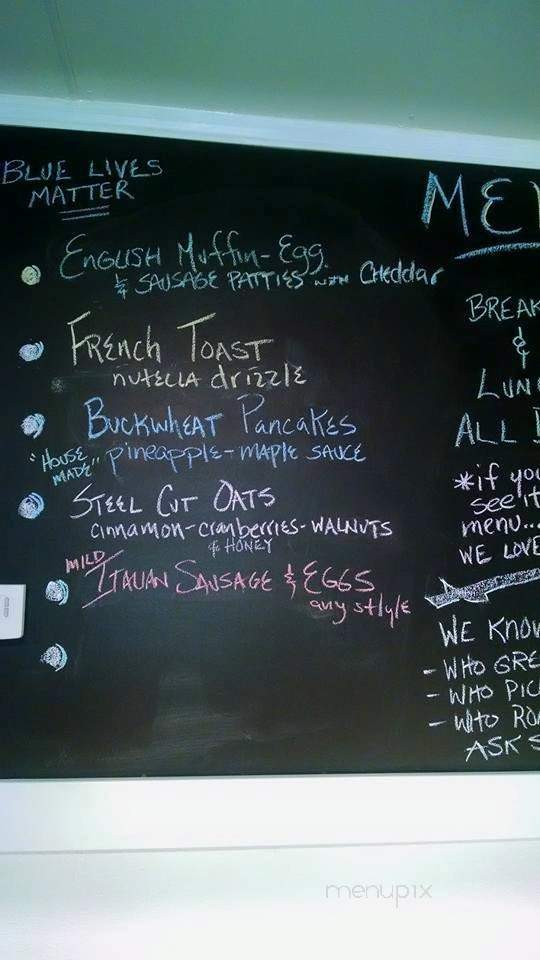 BLUE LIVES
MATTER
ENGLISH MUFFIN - EGG
& SAUSAGE PATTIES WITH CHEDDAR
FRENCH TOAST
NUTELLA DRIZZLE
BUCKWHEAT PANCAKES
"HOUSE MADE" PINEAPPLE - MAPLE SAUCE
STEEL CUT OATS
CINNAMON - CRANBERRIES - WALNUTS
& HONEY
MILD
ITALIAN SAUSAGE & EGGS
ANY STLYLE
ME
BREAK
&
LUN
ALL
*IF YOU
SEE IT
MENU...
WE LOVE
WE KNOW
- WHO GRE
- WHO PIC
- WHO ROA
ASK S
menupix